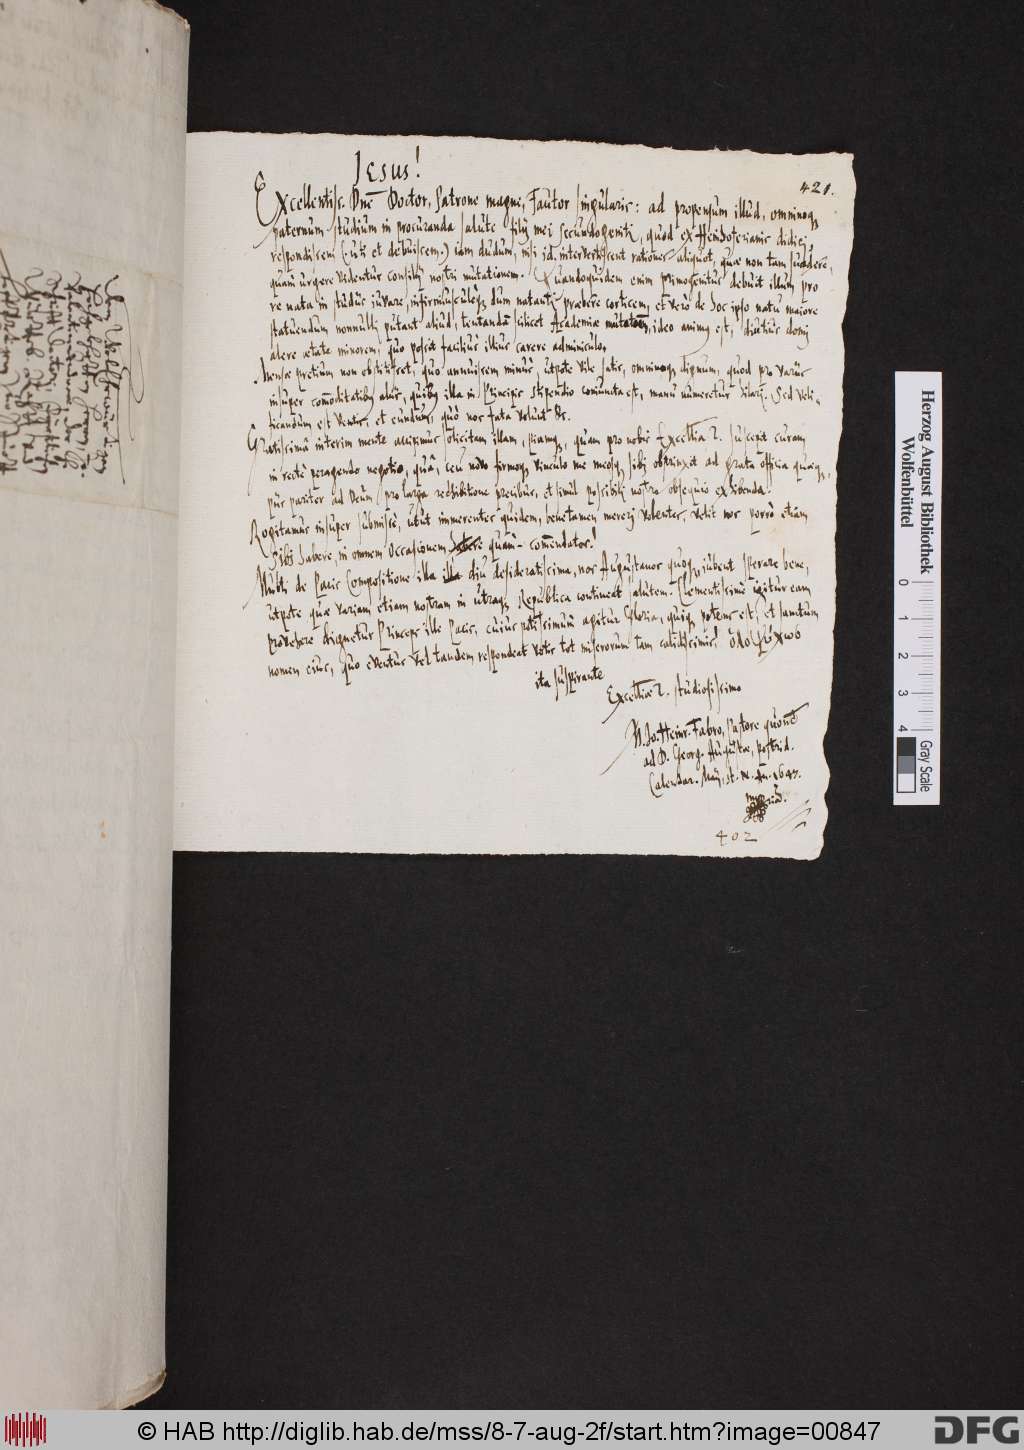 421.
Jesus!
Excellentiss. Dne Doctor, Patrone magne, Fautor singularis: ad propensum illud, omninoq;
paternum studium in procuranda salute filij mei secundogeniti, quod ex Hemhoferianis didici,
respondissem (uti et debuissem) iam dudum, nisi id intervertissent rationes aliquot, quae non tam suadere,
quam urgere videntur consilij nostri mutationem. Quandoquidem enim primogenitus debuit illum, pro
re nata in studiis iuvare, infirmiusculoq; dum natanti praebere corticem, et vero de hoc ipso natu maiore
statuendum nonnulli putant aliud, tentandam scilicet Academiae ideo animus est, diutius domi
alere aetate minorem, quo possit facilius illius carere adminiculo.
Mensae pretium non obstitisset, quo annuissem minus, utpote vile satis, omninoq; dignum, quod pro variis
insuper commoditatib; aliis, quibus illa in Principis stipendio coniuncta est, manu numeretur hilari. Sed veli-
ficandum est ventis, et eundum, quo nos fata volunt &c.
Gratissima interim mente accipimus solicitam illam, piamq; quam pro nobis Excellia T. suscepit curam
in recte peragendo negotio, qua, ceu novo firmoq; vinculo me meosq; sibi obstrinxit ad grata officia quaeq;,
pijs pariter ad Deum, pro larga redhibitione precibus, et simul possibili nostro obsequio exhibenda.
Rogitamus insuper submisse, utut immerentes quidem, bene tamen merery volentes, velit nos porro etiam
Sibi habere, in omnem occasionem quam commendatos!
Multi de Pacis Compositione illa diu desideratissima, nos Augustanos quoq; iubent sperare bene,
utpote quae variam etiam nostram in utraq; Republica contineat salutem. Clementissime igitur eam
provehere dignetur Princeps ille Pacis, cuius potissimum agitur Gloria, quiq; potens est, et sanctum
nomen eius, quo eventus vel tandem respondeat votis tot miserorum tam calidissimis! ὁλοψύχως
ita suspirante
Excelliae T. studiosissimo
M. Jo. Heinr. Fabro, Pastore quond.
ad D. Georg. Augustae, postrid.
Calendar. Maij, st. n. An. 1647.
402
Herzog August Bibliothek
Wolfenbüttel
0 1 2 3 4
Gray Scale
© HAB http://diglib.hab.de/mss/8-7-aug-2f/start.htm?image=00847
DFG